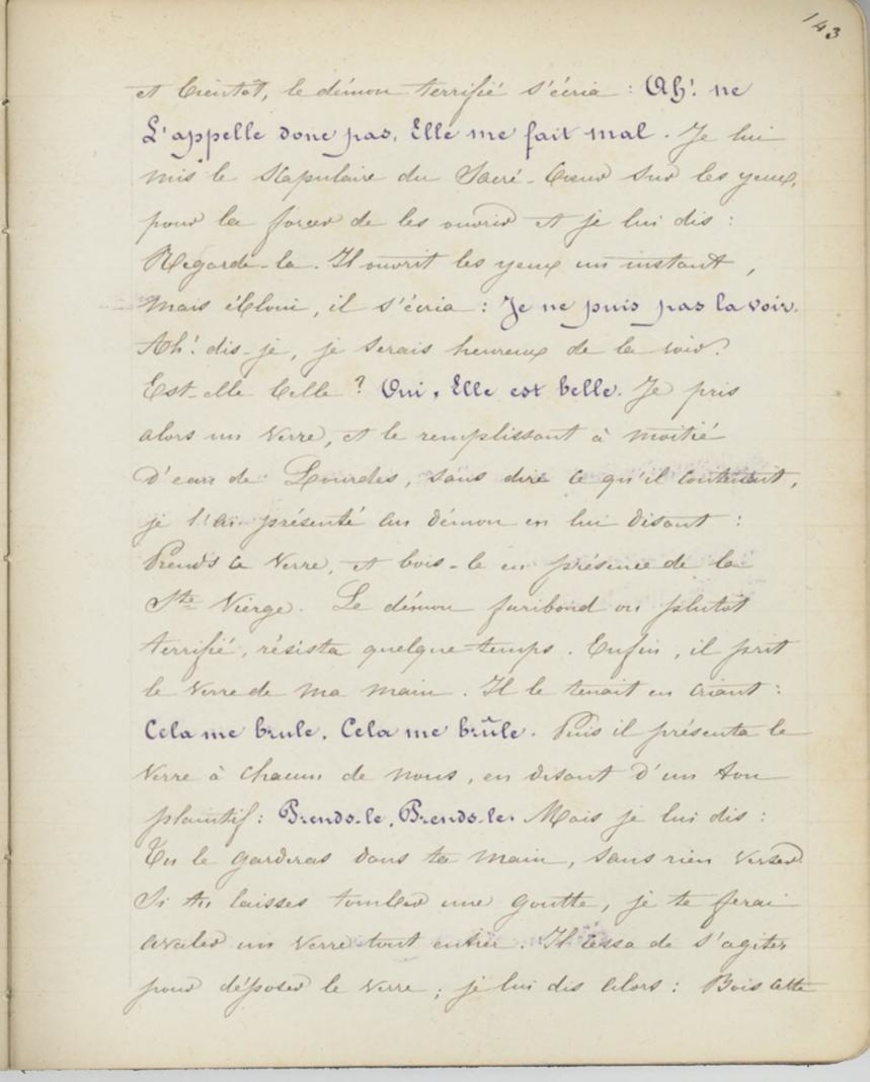 143
et bientôt, le démon terrifié s'écria : Ah! ne
L'appelle donc pas, Elle me fait mal. Je lui
mis le scapulaire du Sacré-Cœur sur les yeux,
pour le forcer de les ouvrir et je lui dis :
Regarde-la. Il ouvrit les yeux un instant,
mais ébloui, il s'écria : Je ne puis pas la voir.
Ah! dis-je, je serais heureux de la voir!
Est-elle belle ? Oui, Elle est belle. Je pris
alors un verre, et le remplissant à moitié
d'eau de Lourdes, sans dire ce qu'il contenait,
je l'ai présenté au démon en lui disant :
Prends ce verre, et bois-le en présence de la
Ste Vierge. Le démon furibond ou plutôt
terrifié, résista quelque temps. Enfin, il prit
le verre de ma main. Il le tenait en criant :
Cela me brule, Cela me brûle. Puis il présenta le
verre à chacun de nous, en disant d'un ton
plaintif : Prends-le, Prends-le. Mais je lui dis :
Tu le garderas dans ta main, sans rien verser
Si tu laisses tomber une goutte, je te ferai
avaler un verre tout entier. Il cessa de s'agiter
pour déposer le verre ; je lui dis alors : Bois cette